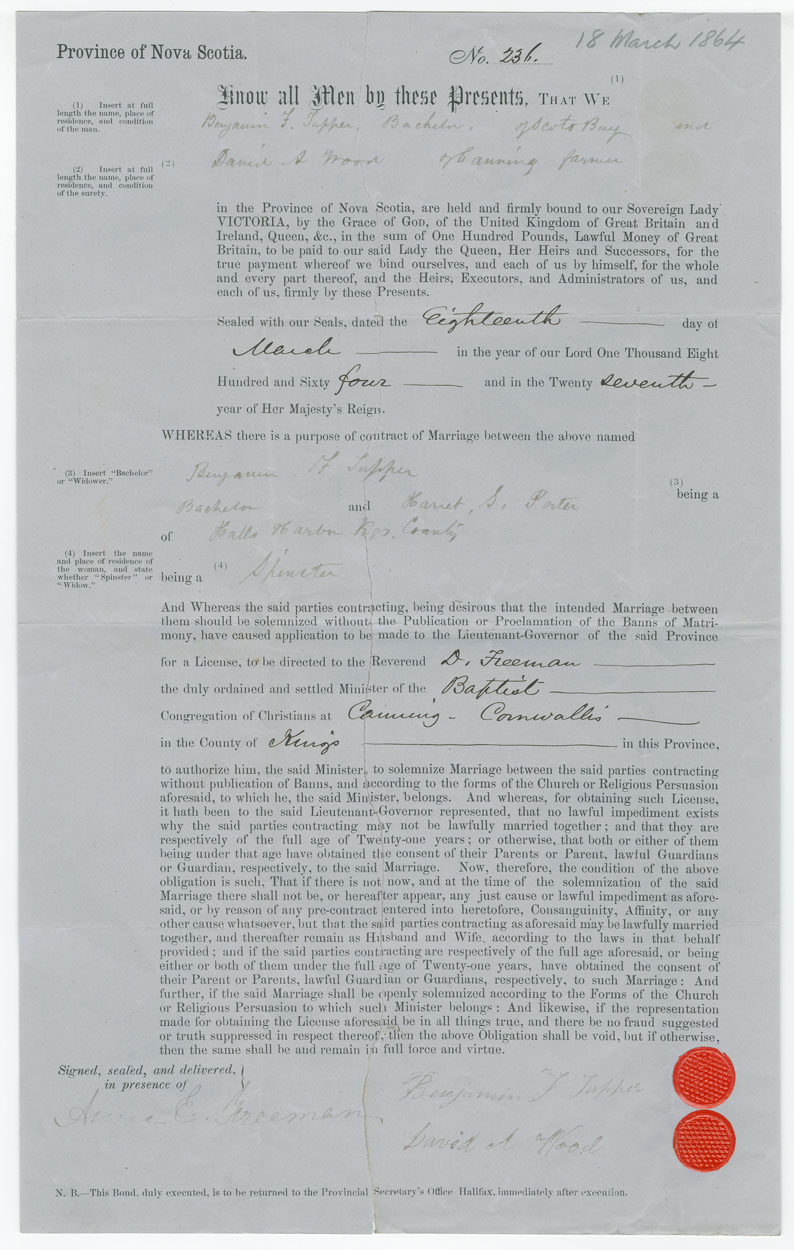 18 March 1864
Province of Nova Scotia.
No. 236.
Know all Men by these Presents, THAT WE (1)
(1) Insert at full
length the name, place of
residence, and condition
of the man.
Benjamin F. Tupper, Bachelor, of Scots Bay and
(2) Insert at full
length the name, place of
residence, and condition
of the surety.
(2)
David A Wood of Canning farmer
in the Province of Nova Scotia, are held and firmly bound to our Sovereign Lady
VICTORIA, by the Grace of GOD, of the United Kingdom of Great Britain and
Ireland, Queen, &c., in the sum of One Hundred Pounds, Lawful Money of Great
Britain, to be paid to our said Lady the Queen, Her Heirs and Successors, for the
true payment whereof we bind ourselves, and each of us by himself, for the whole
and every part thereof, and the Heirs, Executors, and Administrators of us, and
each of us, firmly by these Presents.
Sealed with our Seals, dated the Eighteenth day of
March in the year of our Lord One Thousand Eight
Hundred and Sixty four and in the Twenty seventh
year of Her Majesty's Reign.
WHEREAS there is a purpose of contract of Marriage between the above named
(3) Insert "Bachelor"
or "Widower."
Benjamin F Tupper
(3)
being a
Bachelor and Harret, S. Porter
of Halls Harbor Kgs. County
(4) Insert the name
and place of residence of
the woman, and state
whether "Spinster" or
"Widow."
being a (4) Spinster
And Whereas the said parties contracting, being desirous that the intended Marriage between
them should be solemnized without the Publication or Proclamation of the Banns of Matri-
mony, have caused application to be made to the Lieutenant-Governor of the said Province
for a License, to be directed to the Reverend D. Freeman
the duly ordained and settled Minister of the Baptist
Congregation of Christians at Canning - Cornwallis
in the County of Kings in this Province,
to authorize him, the said Minister, to solemnize Marriage between the said parties contracting
without publication of Banns, and according to the forms of the Church or Religious Persuasion
aforesaid, to which he, the said Minister, belongs. And whereas, for obtaining such License,
it hath been to the said Lieutenant-Governor represented, that no lawful impediment exists
why the said parties contracting may not be lawfully married together; and that they are
respectively of the full age of Twenty-one years; or otherwise, that both or either of them
being under that age have obtained the consent of their Parents or Parent, lawful Guardians
or Guardian, respectively, to the said Marriage. Now, therefore, the condition of the above
obligation is such, That if there is not now, and at the time of the solemnization of the said
Marriage there shall not be, or hereafter appear, any just cause or lawful impediment as afore-
said, or by reason of any pre-contract entered into heretofore, Consanguinity, Affinity, or any
other cause whatsoever, but that the said parties contracting as aforesaid may be lawfully married
together, and thereafter remain as Husband and Wife, according to the laws in that behalf
provided; and if the said parties contracting are respectively of the full age aforesaid, or being
either or both of them under the full age of Twenty-one years, have obtained the consent of
their Parent or Parents, lawful Guardian or Guardians, respectively, to such Marriage: And
further, if the said Marriage shall be openly solemnized according to the Forms of the Church
or Religious Persuasion to which such Minister belongs: And likewise, if the representation
made for obtaining the License aforesaid be in all things true, and there be no fraud suggested
or truth suppressed in respect thereof, then the above Obligation shall be void, but if otherwise,
then the same shall be and remain in full force and virtue.
Signed, sealed, and delivered,
in presence of
Annie E. Freeman
Benjamin F Tupper
David A Wood
N. B.—This Bond, duly executed, is to be returned to the Provincial Secretary's Office Halifax, immediately after execution.